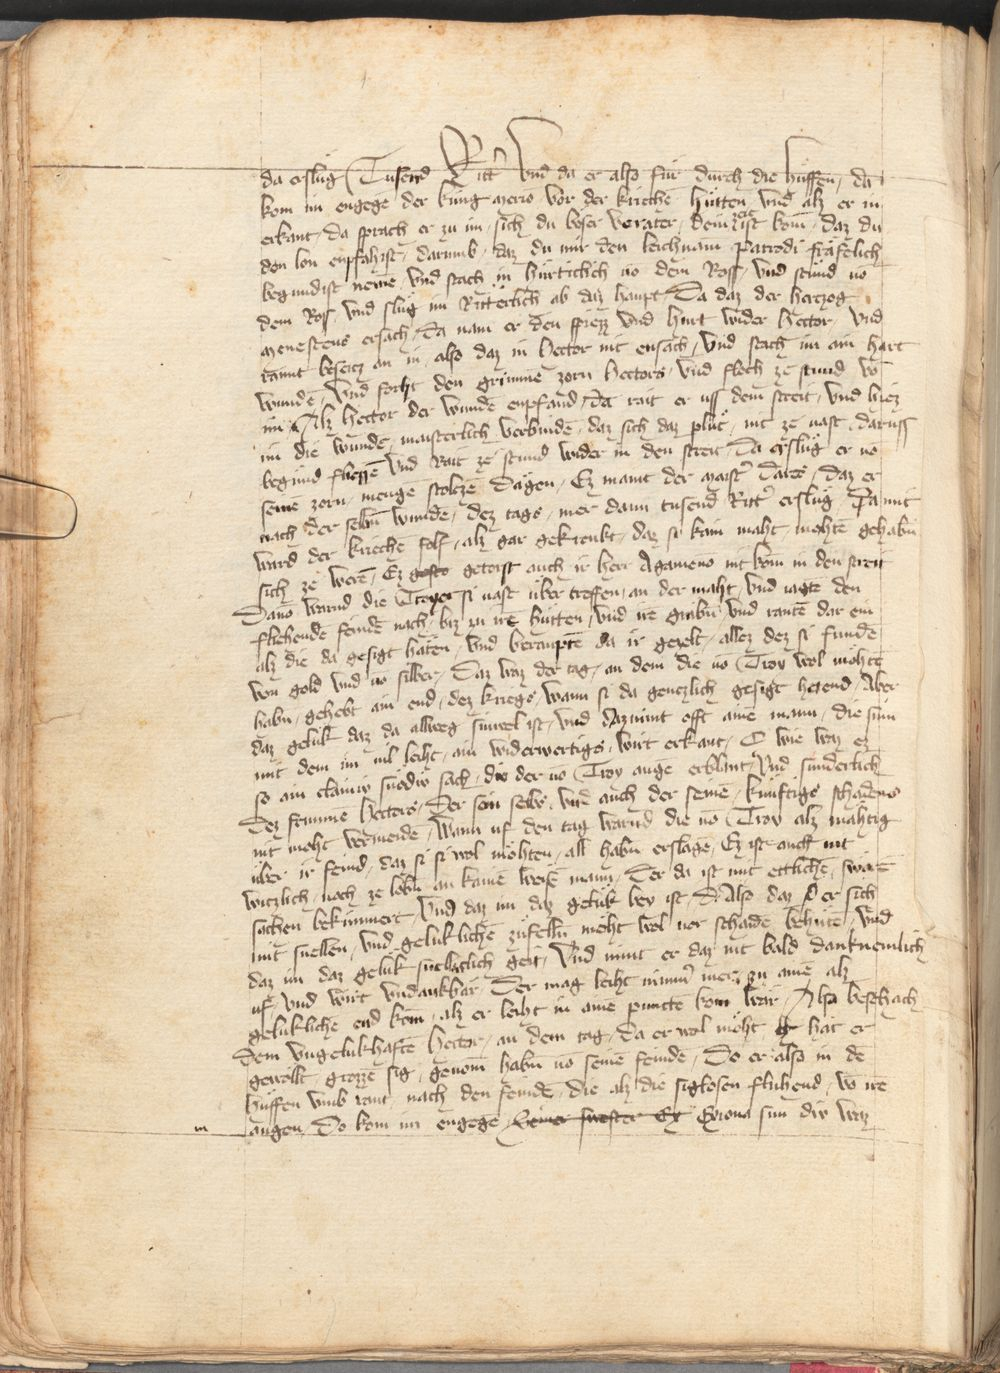 da erslůg Tusend Ritt' vnd da er also fůr durch die hůffen / da
kom im engege der kung merio vor der kriechē hůtten vnd alz er in
erkant / da sprach er zu im / sich du boser verater / dein zeit ist kom̄ / daz du
den lon enpfahist / darumb / daz du mir den leichnam patrocli fräfelich
begundist nemē / vnd stach in hurticlich vō dem Ross / vnd stůnd vō
dem Ross vnd slůg im Ritterlich ab daz haupt / Da daz der hertzog
menesteus ersach / da nam er den spiezz vnd hurt wider hector / vnd
rannt besectz an in / also daz in hector nit ensach / vnd stach im ain hart
wundē / vnd forht den grimmē zorn hectors / vnd floch ze stund vō
im / Alz hector der wundē enpfand / da rait er uss dem streit / vnd hiez
im die wundē / maisterlich verbindē / daz sich daz plůt / nit ze vast / daruss
begund fliessē vnd Rait ze stund wider in den streit / Da erslůg er vō
seinē zorn / mengē stoltzē dägen / Ez maint der maist' dares / daz er
nach der selbn̄ wundē / dez tags / mer dann tusend Ritt' erslůg / Da mit
ward der kriechē folk / alz gar gekrenkt / daz si kain maht / mohtē gehabn̄
sich ze werē / Ez getorst auch ir herr Agameno nit kom̄ in den streit
Dauō warnd die Troyer si vast über treffen / an der maht / vnd iagtē den
fliehendē feindē nach / biz zu irē hůtten / vnd ire grabn̄ / vnd rantē dar ein
alz die da gesigt häten / vnd beraupte da ir gezelt / allez dez si fundē
von gold vnd vō silber / Daz waz der tag / an dem die vō Troy wol möhtē
habn̄ / gehebt ain end / dez kriegs / wann si da gentzlich gesigt hetend / Aber
daz gelük daz da allweg sinwel ist / vnd daz nimt offt ainē mann / die sinn
mit dem im vil leiht / ain widerwertigs / wirt erkant / O wie waz ez
so ain claine snödiv sach / div der vō Troy auge erblant / vnd sunderlich
Dez frummē hectors / Der sein selbs / vnd auch der seinē / künftigs schadens
nit moht vermeidē / Wann uf den tag warnd die vō Troy alz mähtig
über ir feind / daz si si wol möhten / all habn̄ erslagē / Ez ist auch nit
witzlich / noch ze lobn̄ an kainē weisē mann / Der da ist mit ettlichē / swarē
sachen bekümmert / vnd daz im daz gelük bey ist / Also daz er sich
mit snellen / vnd gelüklichē zůfelln̄ möht wol vor schadē behütē / vnd
daz im daz gelük sneliclich geit / Vnd nimt er daz nit bald danknemlich
uf / vnd wirt vndankbär / Der mag leiht nimm' mer / zu ainē alz
gelüklichē end kom̄ / alz er leiht in ainē puncte kom̄ wär / Also beschach
dem vngelükhaftē hector / an dem tag / da er wol möht hät er
gewollt / grozzē sig / genom̄ habn̄ vō seinē feindē / Do er also in dē
hůffen vmb rant nach den feindē / die alz die siglosen fluhend / vō irē
augen / Do kom im engege seiner swester Ex Exiona sun div waz